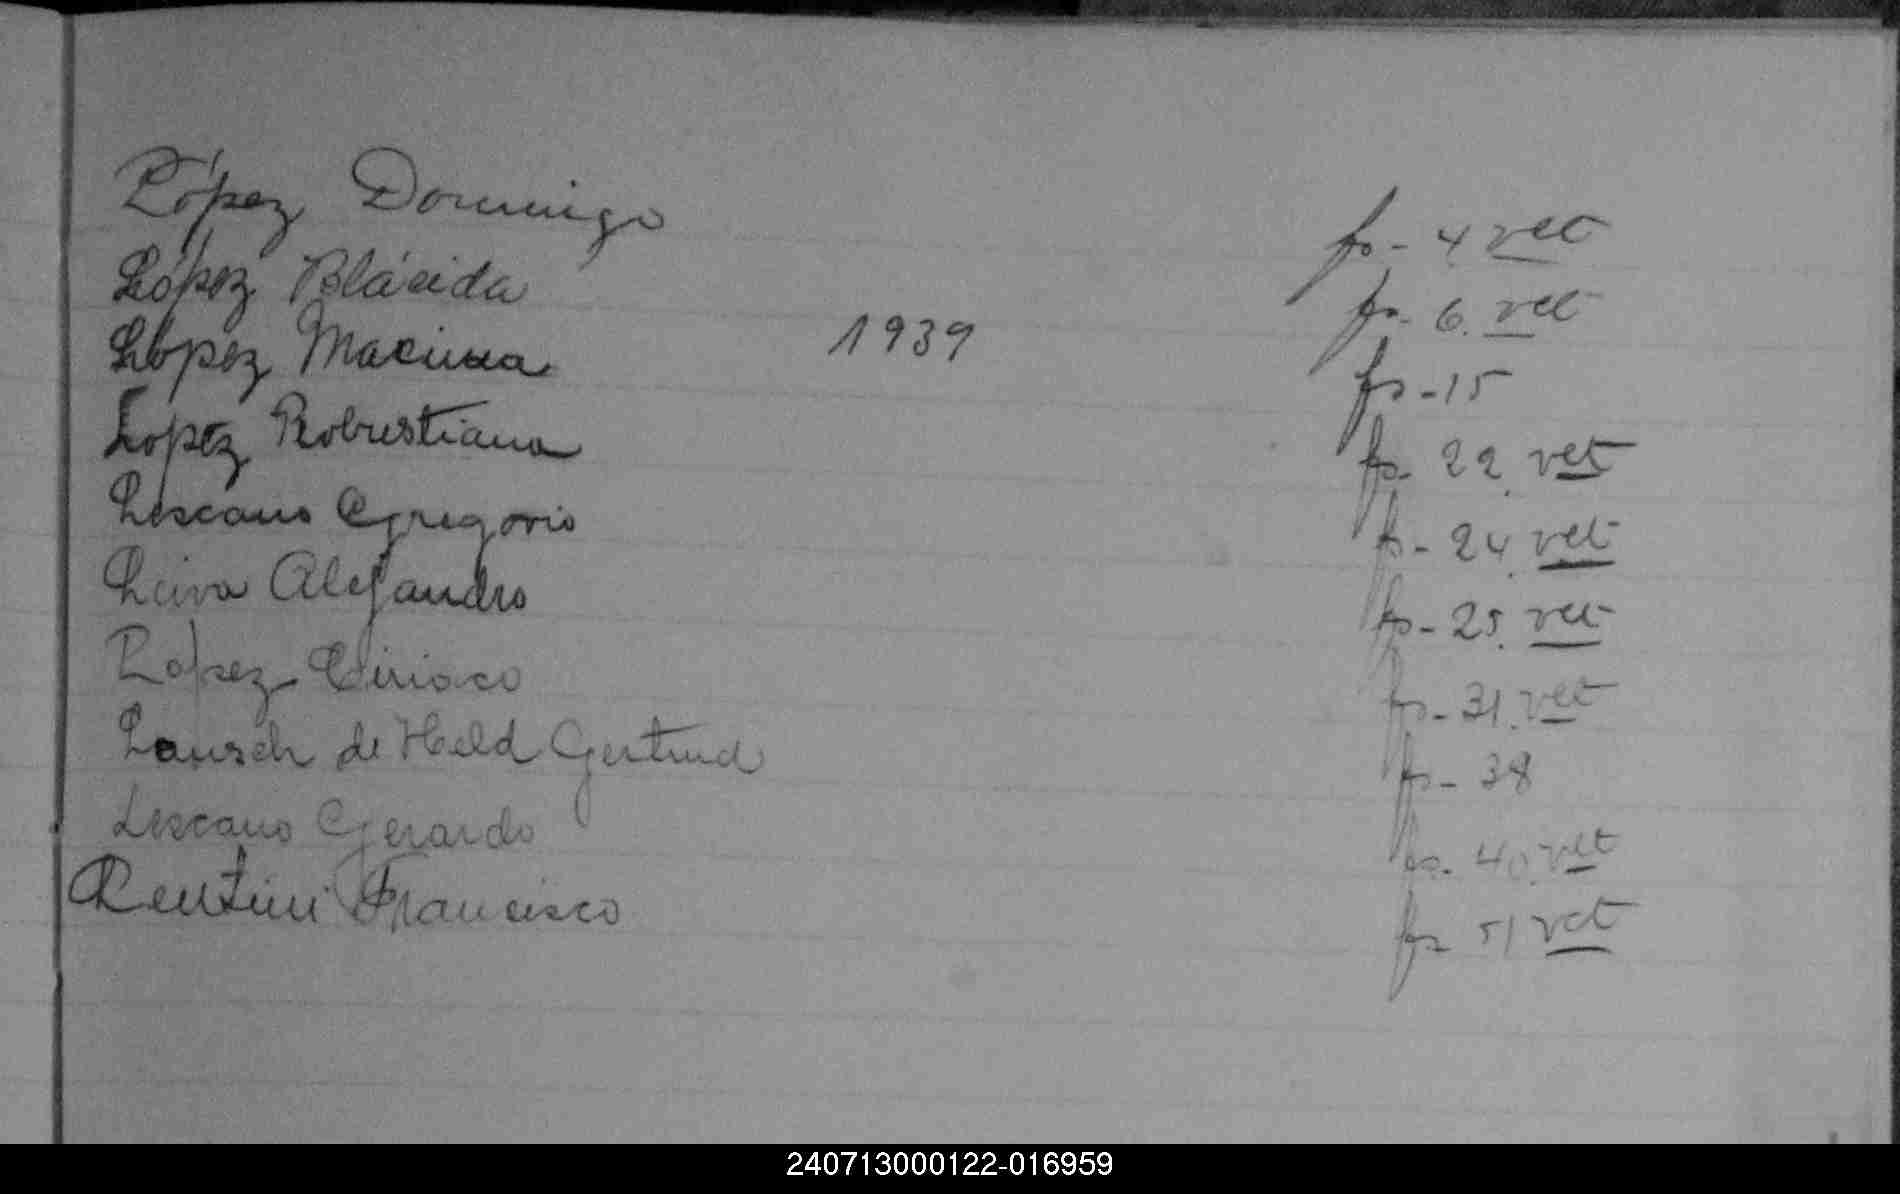 López Domingo fs- 4 vet
López Plácida fs- 6. vet
López Macima 1939 fs-15
Lopez Robustiana fs- 22. vet
Lescano Gregorio fs- 24. vet
Leiva Alejandro fs- 25. vet
López Ciriaco fs- 31. vet
Lausch de Held Gertrud fs- 38
Lescano Gerardo fs. 40. vet
Lentini Francisco fs 51 vet
240713000122-016959